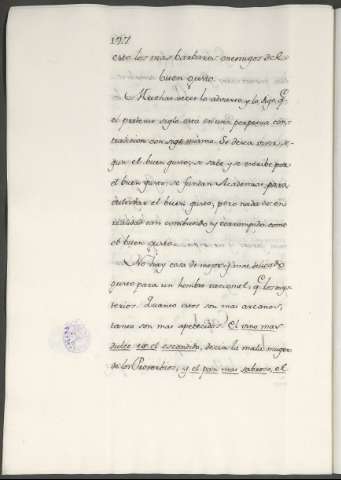 127
esto los mas barbaros enemigos del
buen gusto.
Muchas veces lo advierto y lo digo, q.e
el presente siglo esta en una perpetua con-
tradicion consigo mismo. Se desea
el buen gusto, se sabe y se escribe por
el buen gusto, se fundan Academias para
el buen gusto, pero nada de en
realidad tan confundido y corrompido como
el buen gusto.
No hay cosa de mejor y mas delicado
gusto para un hombre racional, q.e los mys-
terios. Quanto estos son mas arcanos,
tanto son mas apetecidos. El vino mas
dulce es el escondido, decia la mala muger
de los Proverbios, y el pan mas sabroso, el